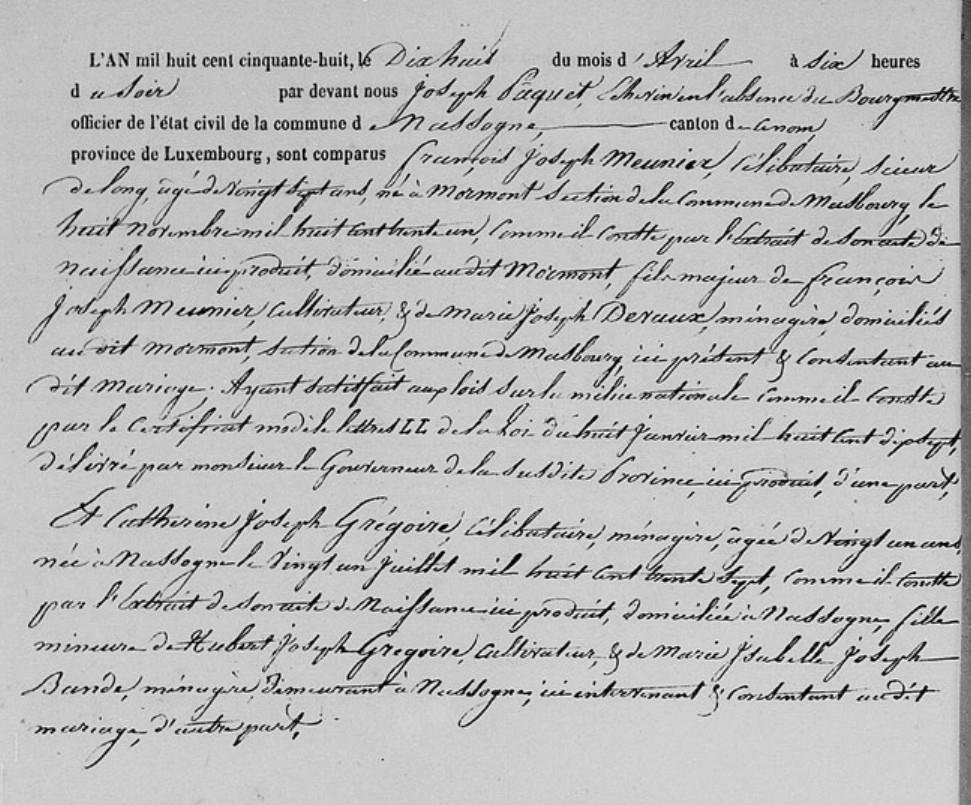 L'AN mil huit cent cinquante-huit, le Dix huit du mois d'Avril à six heures
du Soir par devant nous Joseph Pâquet, Echevin en l'absence du Bourgmestre
officier de l'état civil de la commune de Nassogne, canton de
province de Luxembourg, sont comparus François Joseph Meunier, célibataire, scieur
de long, âgé de vingt sept ans, né à Mormont section de la Commune de Masbourg, le
huit Novembre mil huit cent trente un, comme il conste par l'Extrait de son acte de
Naissance ici produit, domicilié au dit Mormont, fils majeur de François
Joseph Meunier, cultivateur, & de Marie Joseph Devaux, ménagère, domiciliés
au dit Mormont, section de la Commune de Masbourg, ici présent & consentant au
dit mariage. Ayant satisfait aux lois sur la milice nationale comme il conste
par le Certificat modèle lettres LL de la Loi du huit Janvier mil huit cent dix sept,
délivré par monsieur le Gouverneur de la susdite Province, ici produit, d'une part,
Et Catherine Joseph Grégoire, célibataire, ménagère, âgée de vingt un ans,
née à Nassogne le vingt un Juillet mil huit cent trente sept, comme il conste
par l'Extrait de son acte de Naissance ici produit, domiciliée à Nassogne, fille
mineure de Hubert Joseph Grégoire, cultivateur, & de Marie Isabelle Joseph
Bande, ménagère, demeurant à Nassogne, ici intervenant & consentant au dit
mariage, d'autre part,